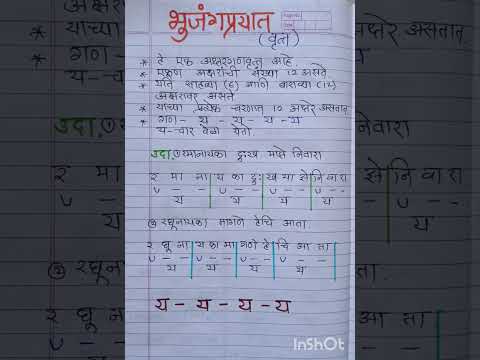 भुजंगप्रयात
(वृत्त)
* हे एक अक्षरगणवृत्त आहे.
* एकूण अक्षरांची संख्या 12 असते
* यति सहाव्या (6) आणि बाराव्या (12)
अक्षरावर असते
* याच्या प्रत्येक चरणात 12 अक्षरे असतात
* गण - य - य - य - य
य - चार वेळा येतो.
उदा. ① रमानायका दुःख माझे निवारा
र मा ना य का दुः ख मा झे नि वा रा
U - - U - - U - - U - -
य य य य
② रघूनायका मागणे हेचि आता.
र घू ना य का मा ग णे हे चि आ ता
U - - U - - U - - U - -
य य य य
य - य - य - य
InShOt